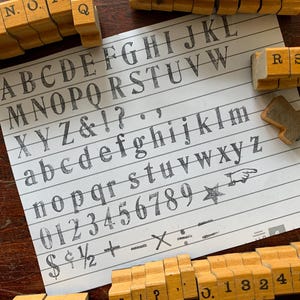 N O Q
ABCDEFGHIJKL
MNOPQRSTUVW
R S
XYZ&!?.,
abcdefghijklm
nopqrstuvwxyz
0123456789
$¢½+-×÷=
? . 0 1 3 2 4